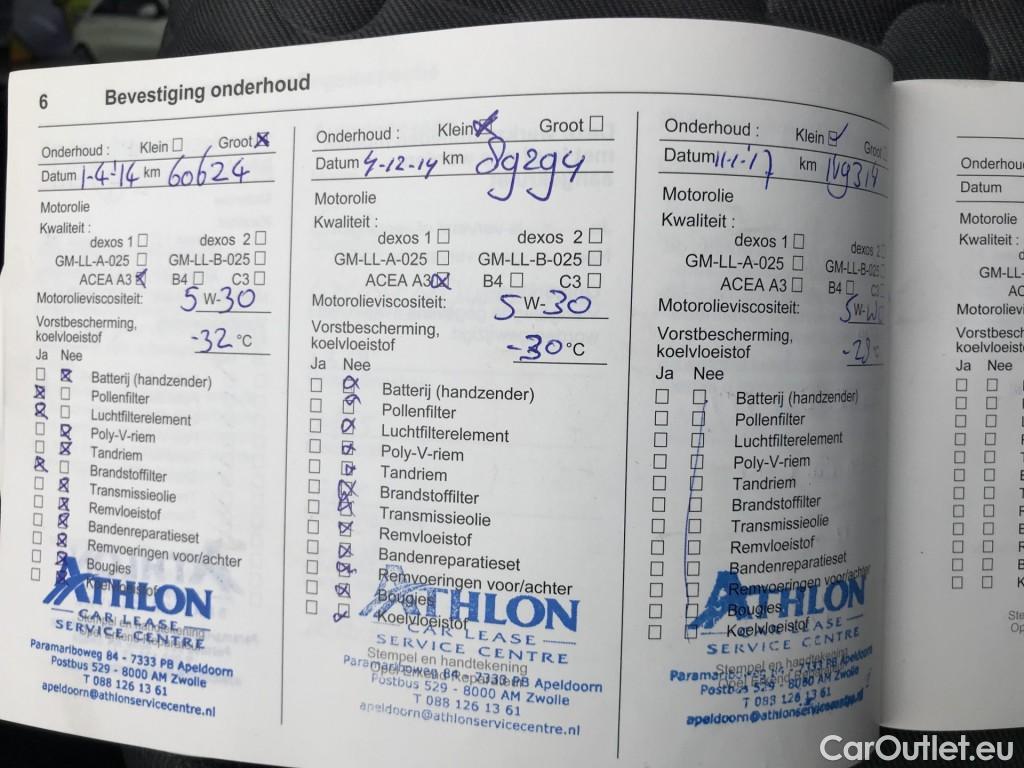 6 Bevestiging onderhoud
Onderhoud : Klein Groot
Datum 1-4-'14 km 60624
Motorolie
Kwaliteit :
dexos 1 dexos 2
GM-LL-A-025 GM-LL-B-025
ACEA A3 B4 C3
Motorolieviscositeit: 5 W-30
Vorstbescherming,
koelvloeistof -32 °C
Ja Nee
Batterij (handzender)
Pollenfilter
Luchtfilterelement
Poly-V-riem
Tandriem
Brandstoffilter
Transmissieolie
Remvloeistof
Bandenreparatieset
Remvoeringen voor/achter
Bougies
Koelvloeistof
ATHLON
CAR LEASE
SERVICE CENTRE
Stempel en handtekening
Paramariboweg 84 - 7333 PB Apeldoorn
Postbus 529 - 8000 AM Zwolle
T 088 126 13 61
apeldoorn@athlonservicecentre.nl
Onderhoud : Klein Groot
Datum 4-12-14 km 89294
Motorolie
Kwaliteit :
dexos 1 dexos 2
GM-LL-A-025 GM-LL-B-025
ACEA A3 B4 C3
Motorolieviscositeit: 5 W-30
Vorstbescherming,
koelvloeistof -30 °C
Ja Nee
Batterij (handzender)
Pollenfilter
Luchtfilterelement
Poly-V-riem
Tandriem
Brandstoffilter
Transmissieolie
Remvloeistof
Bandenreparatieset
Remvoeringen voor/achter
Bougies
Koelvloeistof
ATHLON
CAR LEASE
SERVICE CENTRE
Stempel en handtekening
Paramariboweg 84 - 7333 PB Apeldoorn
Opel Erkend Reparateur
Postbus 529 - 8000 AM Zwolle
T 088 126 13 61
apeldoorn@athlonservicecentre.nl
Onderhoud : Klein Groot
Datum 11-1-'17 km
Motorolie
Kwaliteit :
dexos 1 dexos 2
GM-LL-A-025 GM-LL-B-025
ACEA A3 B4 C3
Motorolieviscositeit: 5 W-
Vorstbescherming,
koelvloeistof -28 °C
Ja Nee
Batterij (handzender)
Pollenfilter
Luchtfilterelement
Poly-V-riem
Tandriem
Brandstoffilter
Transmissieolie
Remvloeistof
Bandenreparatieset
Remvoeringen voor/achter
Bougies
Koelvloeistof
ATHLON
CAR LEASE
SERVICE CENTRE
Stempel en handtekening
Paramariboweg 84 - 7333 PB Apeldoorn
Opel Erkend Reparateur
Postbus 529 - 8000 AM Zwolle
T 088 126 13 61
apeldoorn@athlonservicecentre.nl
Onderhoud
Datum
Motorolie
Kwaliteit :
GM-LL-
Motorolievis
Vorstbesch
koelvloeisto
Ja Nee
CarOutlet.eu